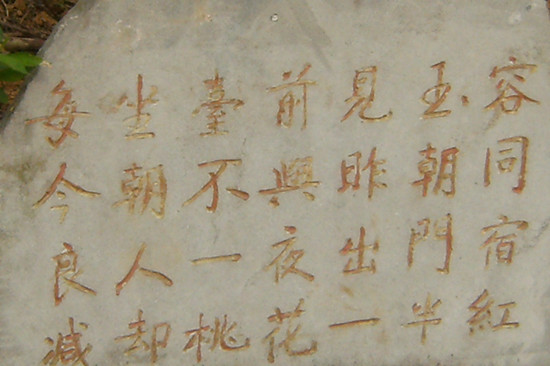 每坐臺前見玉容
今朝不與昨朝同
良人一夜出門宿
減却桃花一半紅